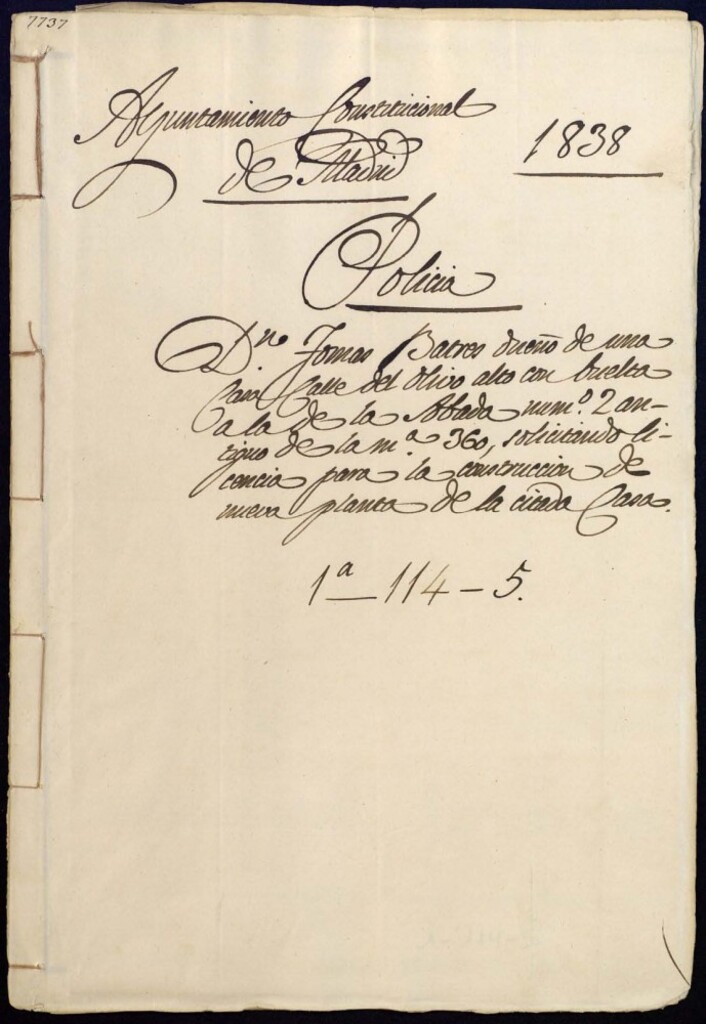 7737
Ayuntamiento Constitucional
de Madrid
1838
Policia
D.n Tomas Batres dueño de una
Casa Calle del Olivo alto con buelta
a la de la Abada num.o 2 an-
tiguo de la m.a 360, solicitando li-
cencia para la construccion de
nueva planta de la citada Casa.
1a - 114 - 5.